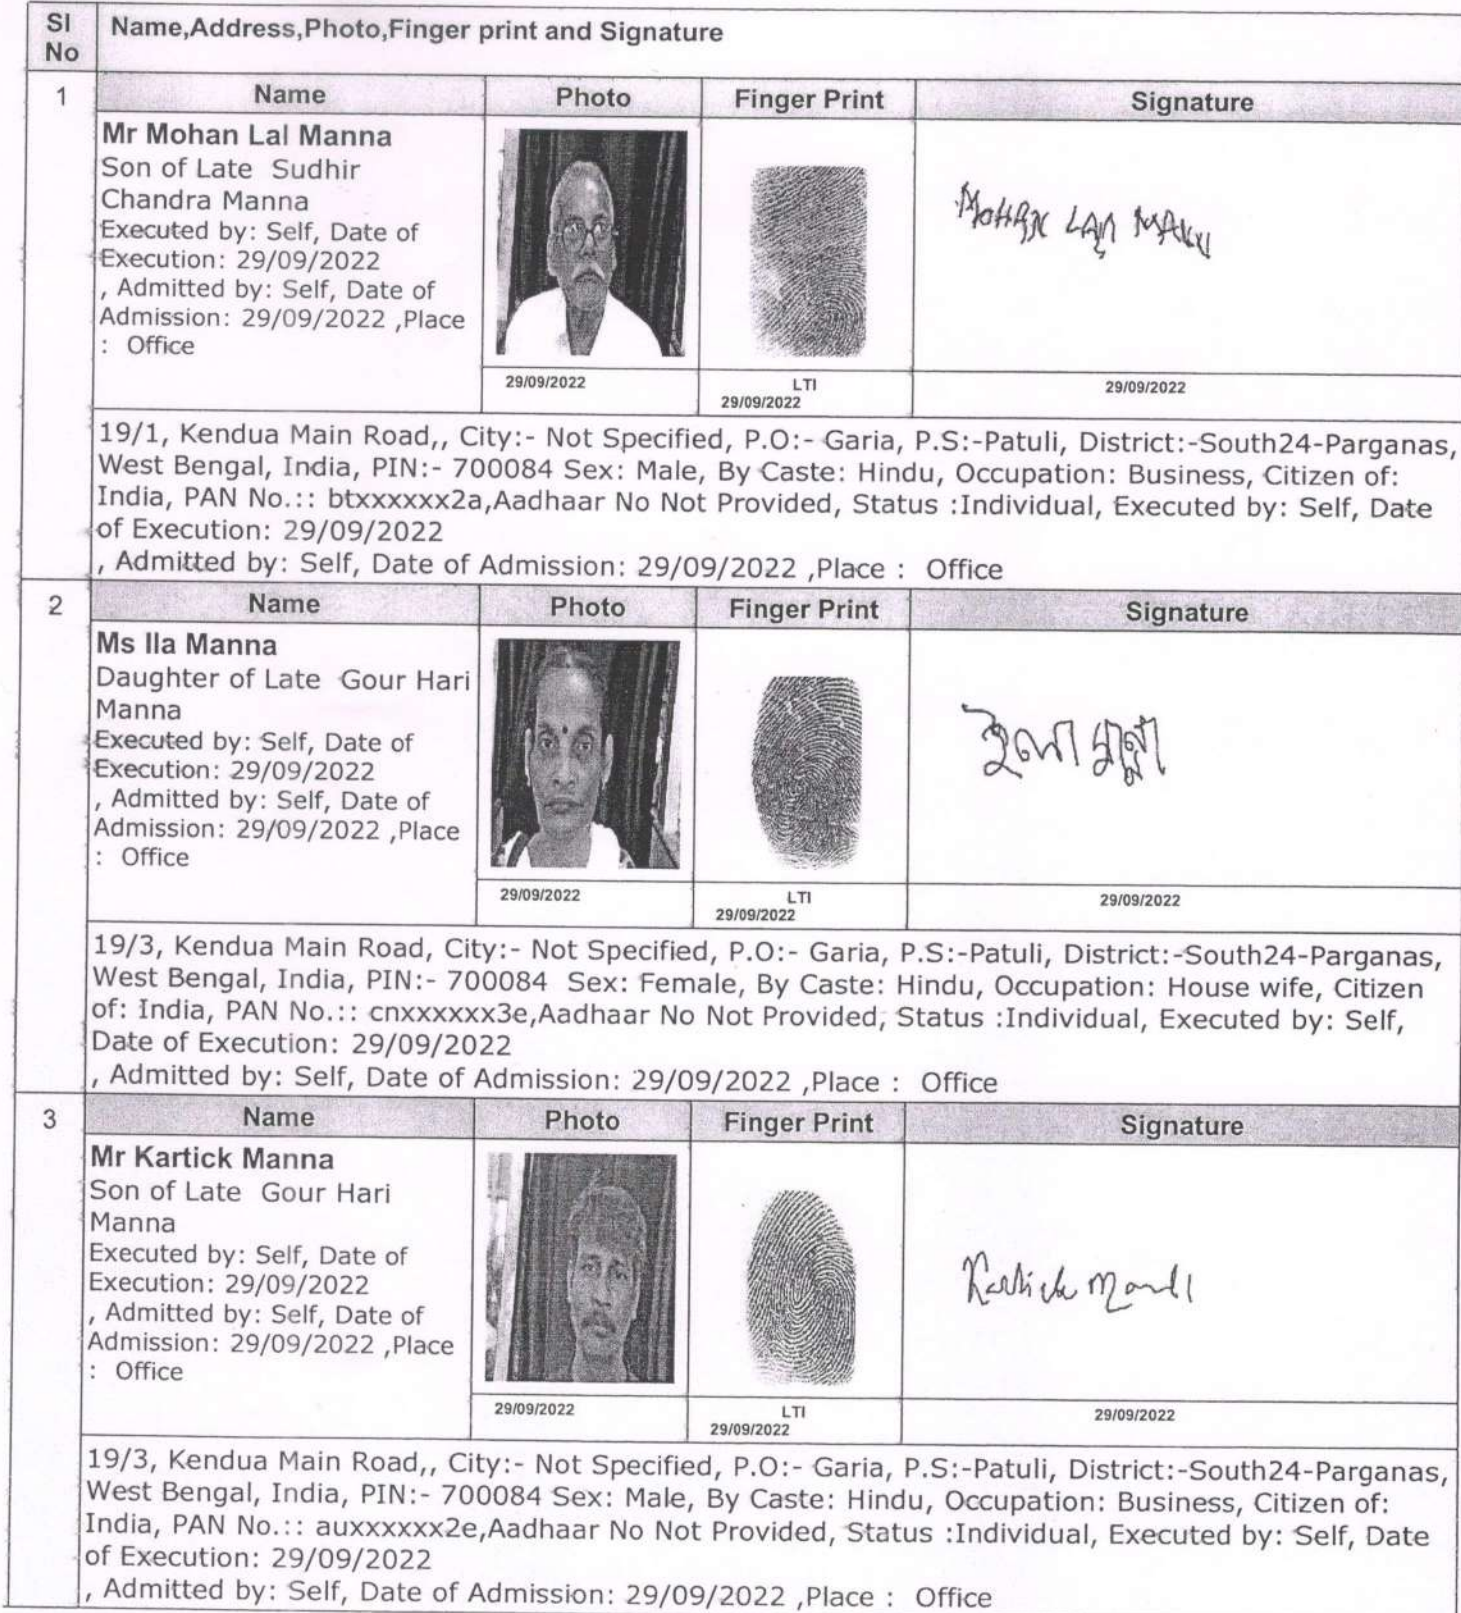 Sl No Name,Address,Photo,Finger print and Signature
1 Name Photo Finger Print Signature
Mr Mohan Lal Manna
Son of Late Sudhir
Chandra Manna
Executed by: Self, Date of
Execution: 29/09/2022
, Admitted by: Self, Date of
Admission: 29/09/2022 ,Place
: Office
MOHAN LAL MANN
29/09/2022 LTI 29/09/2022 29/09/2022
19/1, Kendua Main Road,, City:- Not Specified, P.O:- Garia, P.S:-Patuli, District:-South24-Parganas,
West Bengal, India, PIN:- 700084 Sex: Male, By Caste: Hindu, Occupation: Business, Citizen of:
India, PAN No.:: btxxxxxx2a,Aadhaar No Not Provided, Status :Individual, Executed by: Self, Date
of Execution: 29/09/2022
, Admitted by: Self, Date of Admission: 29/09/2022 ,Place : Office
2 Name Photo Finger Print Signature
Ms Ila Manna
Daughter of Late Gour Hari
Manna
Executed by: Self, Date of
Execution: 29/09/2022
, Admitted by: Self, Date of
Admission: 29/09/2022 ,Place
: Office
ইলা মান্না
29/09/2022 LTI 29/09/2022 29/09/2022
19/3, Kendua Main Road, City:- Not Specified, P.O:- Garia, P.S:-Patuli, District:-South24-Parganas,
West Bengal, India, PIN:- 700084 Sex: Female, By Caste: Hindu, Occupation: House wife, Citizen
of: India, PAN No.:: cnxxxxxx3e,Aadhaar No Not Provided, Status :Individual, Executed by: Self,
Date of Execution: 29/09/2022
, Admitted by: Self, Date of Admission: 29/09/2022 ,Place : Office
3 Name Photo Finger Print Signature
Mr Kartick Manna
Son of Late Gour Hari
Manna
Executed by: Self, Date of
Execution: 29/09/2022
, Admitted by: Self, Date of
Admission: 29/09/2022 ,Place
: Office
Kartick
29/09/2022 LTI 29/09/2022 29/09/2022
19/3, Kendua Main Road,, City:- Not Specified, P.O:- Garia, P.S:-Patuli, District:-South24-Parganas,
West Bengal, India, PIN:- 700084 Sex: Male, By Caste: Hindu, Occupation: Business, Citizen of:
India, PAN No.:: auxxxxxx2e,Aadhaar No Not Provided, Status :Individual, Executed by: Self, Date
of Execution: 29/09/2022
, Admitted by: Self, Date of Admission: 29/09/2022 ,Place : Office